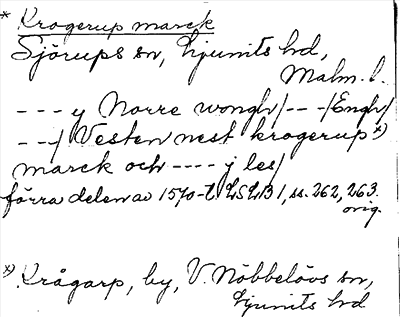 * Krogerup marck
Sjörups sn, Ljunits hd,
Malm. l.
--- y Norre wongh/---/Engh/
--/ Vesten nest krogerup x)
marck och ---- j les/
förra delen av 1570-t. LSLB 1, ss. 262, 263.
orig.
x) Krågarp, by, V. Nöbbelövs sn,
Ljunits hd